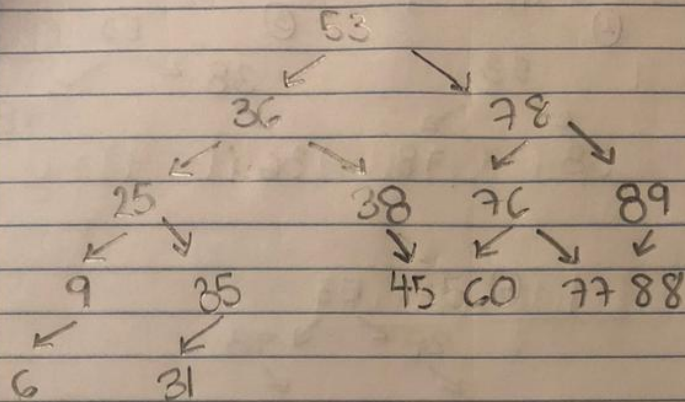 53
36 78
25 38 76 89
9 35 45 60 77 88
6 31